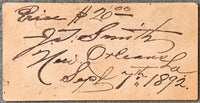 Price $20.00
J. Smith
New Orleans La
Sept 7th 1892